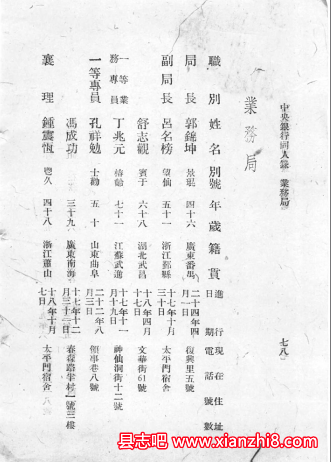 中央銀行同人錄　業務局　七八
業務局
職別　姓名　別號　年歲　籍貫　進行日期　現在住址　電話號數
局長　郭錦坤　景琨　四十六　廣東番禺　二十四年四月一日　復興里五號
副局長　呂名榜　望仙　五十一　浙江鄞縣　十七年十月　太平門宿舍
舒志觀　賓于　六十八　湖北武昌　十八年四月　文華街61號
一等業務專員　丁兆元　七十一　江蘇武進　十七年十一月十九日　神仙洞街十二號
一等專員　孔祥勉　士勷　五十　山東曲阜　二十二年八月三日　領事巷八號
馮成功　三十九　廣東南海　十七年十二月三十日　春森路半村一號三樓
襄理　鍾震恆　壺久　四十八　浙江蕭山　十八年十月七日　太平門宿舍
县志吧
www.xianzhi8.com